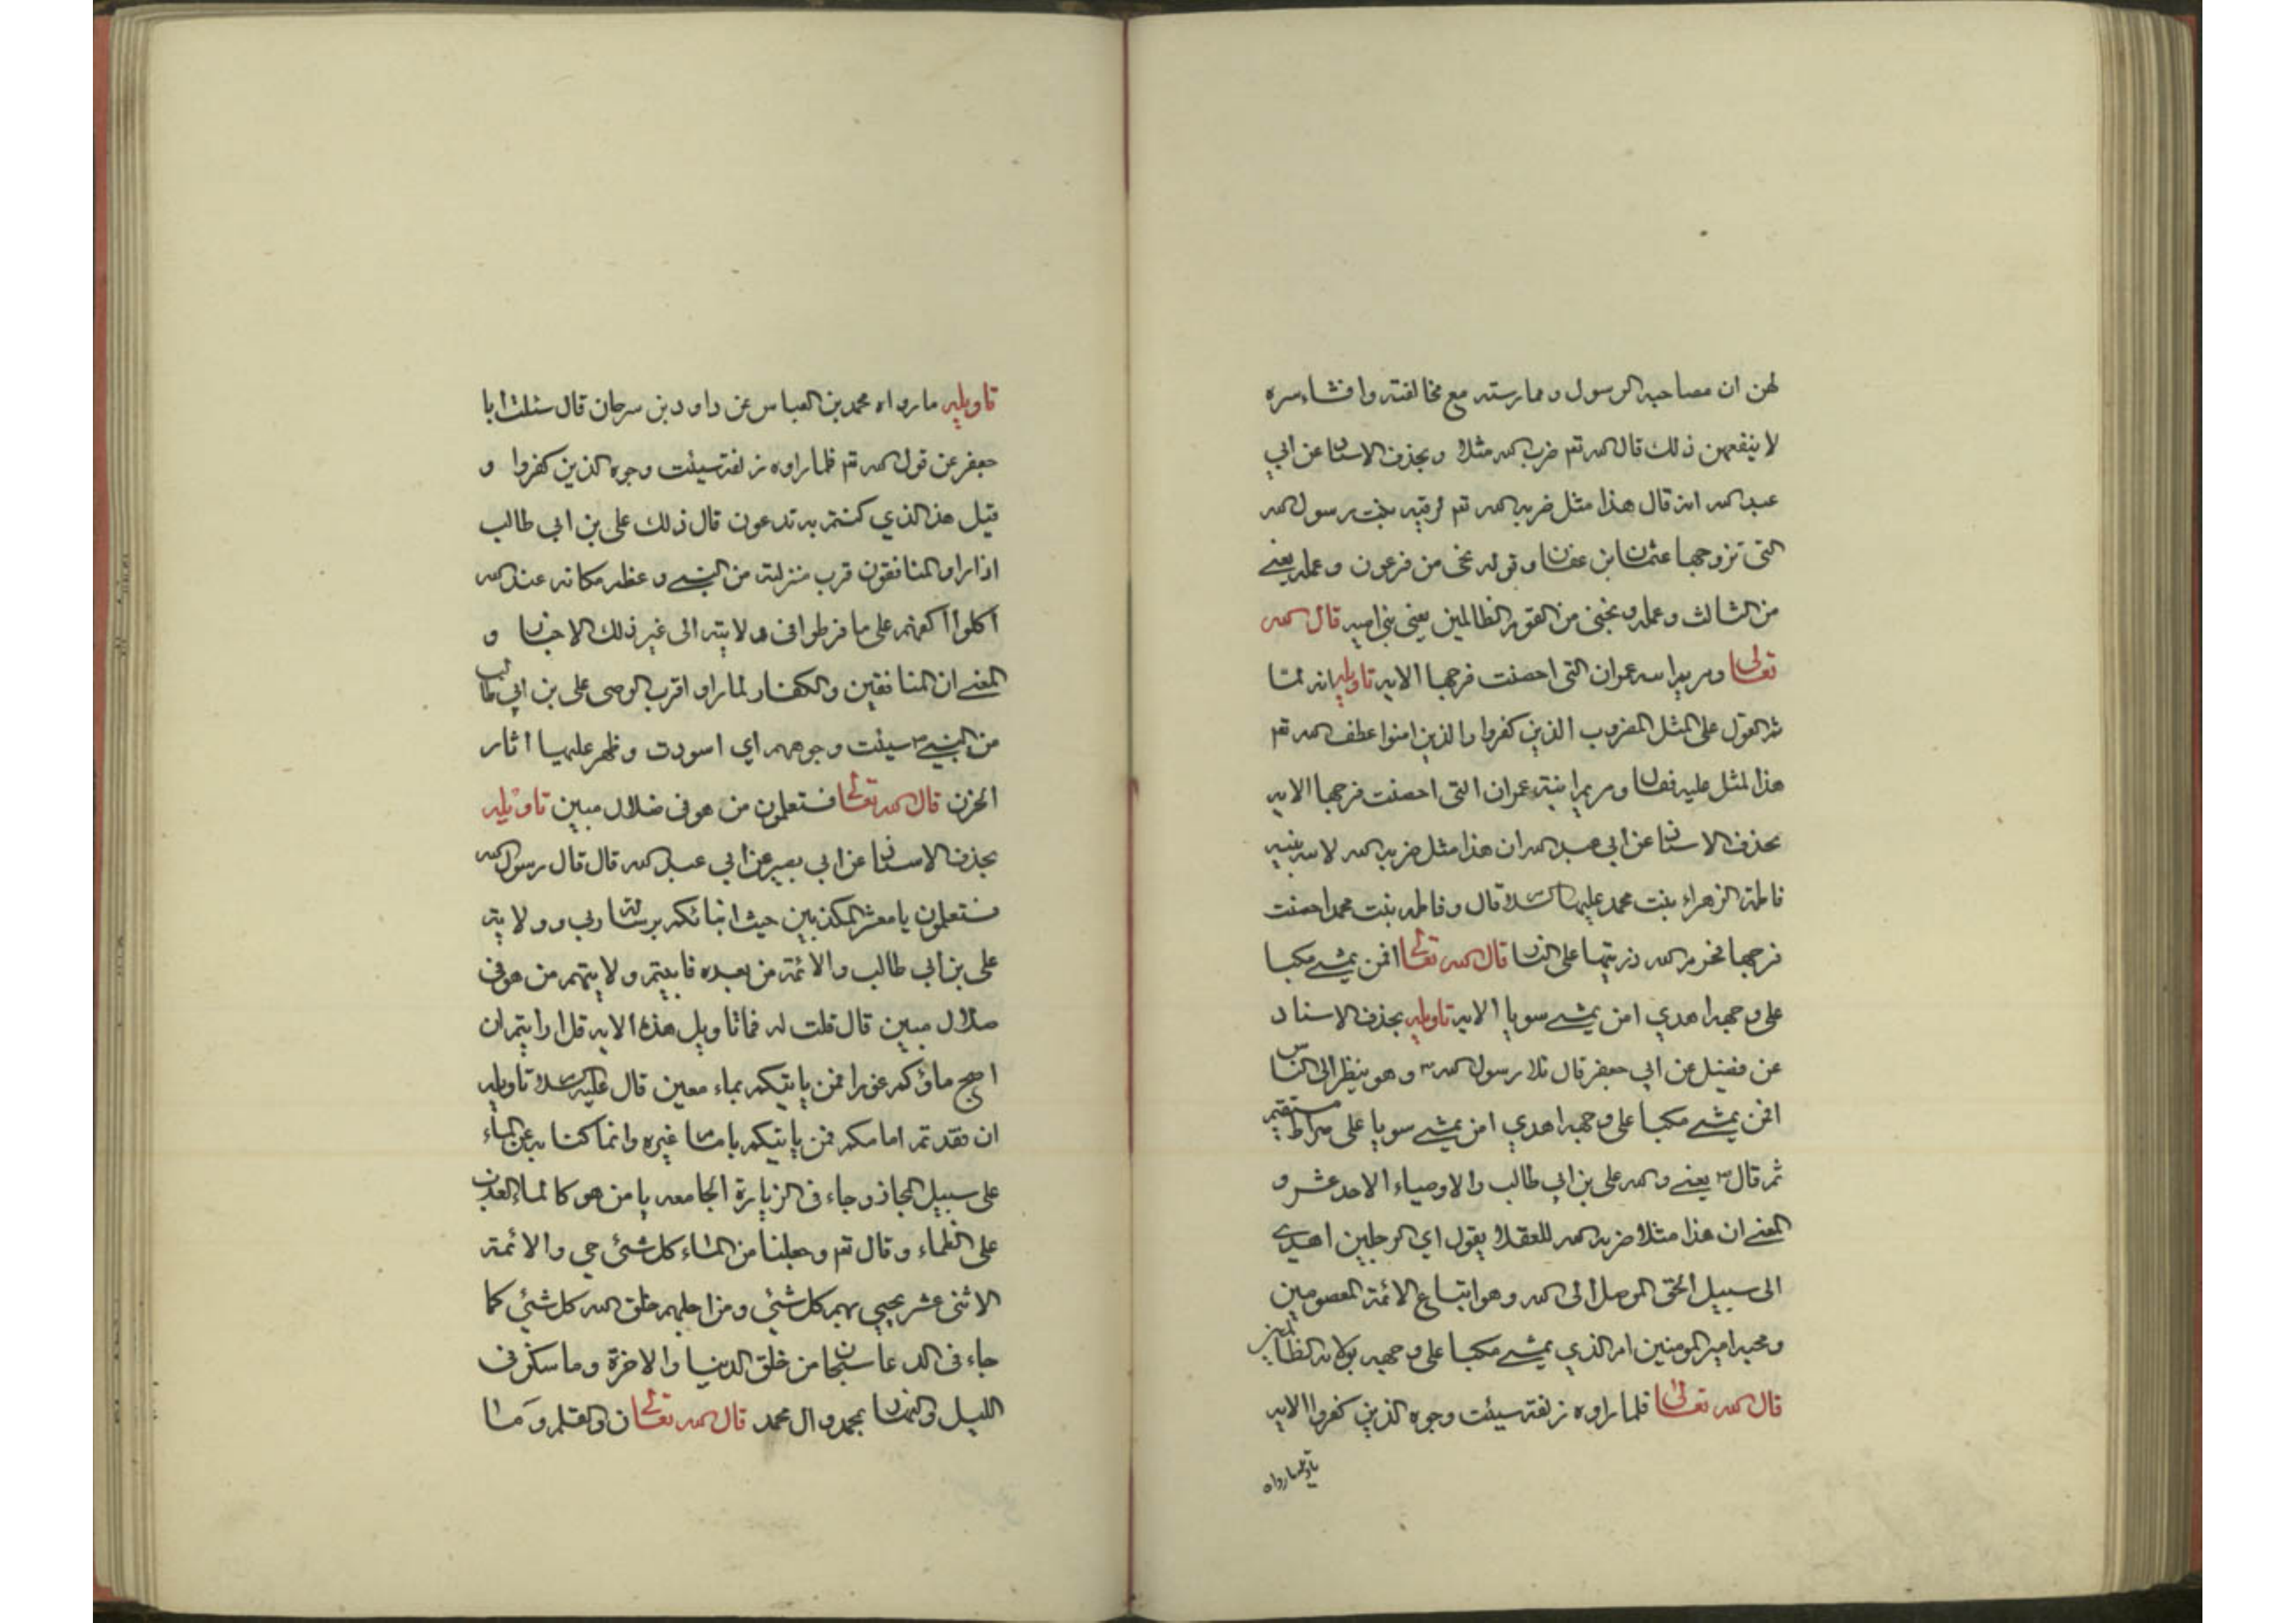 لهن ان مصاحبه الرسول وممارسته مع مخالفته وافشاء سره
لا ينفعهن ذلك قال الله تعم ضرب الله مثلا وبحذف الاسناد عن ابي
عبد الله انه قال هذا مثل ضربه الله تعم لرقيه بنت رسول الله
التي تزوجها عثمان ابن عفان وقوله نجني من فرعون وعمله يعني
من الثالث وعمله ونجني من القوم الظالمين يعني بني اميه قال الله
تعالى ومريم ابنه عمران التي احصنت فرجها الايه تاويله انه لما
تم القول على المثل المضروب الذين كفروا والذين امنوا عطف الله تعم
هذا المثل عليه فقال ومريم ابنة عمران التي احصنت فرجها الايه
بحذف الاسناد عن ابي عبد الله ان هذا مثل ضربه الله لابنة نبيه
فاطمة الزهراء بنت محمد عليهما السلام قال وفاطمه بنت محمد احصنت
فرجها فحرم الله ذريتها على النار قال الله تعالى افمن يمشي مكبا
على وجهه اهدي امن يمشي سويا الايه تاويله بحذف الاسناد
عن فضيل عن ابي جعفر قال تلا رسول الله ص وهو ينظر الى الناس
افمن يمشي مكبا على وجهه اهدي امن يمشي سويا على صراط مستقيم
ثم قال يعني والله علي بن ابي طالب والاوصياء الاحد عشر و
المعنى ان هذا مثلا ضربه الله للعقلا يقول اي الرجلين اهدى
الى سبيل الحق الموصل الى الله وهو اتباع الائمة المعصومين
ومحبه امير المومنين ام الذي يمشي مكبا على وجهه بولايه الظالمين
قال الله تعالى فلما راوه زلفة سيئت وجوه الذين كفروا الايه
تاويله ما رواه
تاويله ما رواه محمد بن العباس عن داود بن سرحان قال سئلت ابا
جعفر عن قول الله تعم فلما راوه زلفة سيئت وجوه الذين كفروا و
قيل هذا الذي كنتم به تدعون قال ذلك علي بن ابي طالب
اذا راو المنافقون قرب منزلته من النبي وعظم مكانه عند الله
اكلوا اكفهم على ما فرطوا في ولايته الى غير ذلك الاخبار و
المعنى ان المنافقين والكفار لما راو اقرب الوصى علي بن ابي طالب
من النبي ص سيئت وجوههم اي اسودت وظهر عليها اثار
الحزن قال الله تعالى فستعلمون من هو في ضلال مبين تاويله
بحذف الاسناد عن ابي بصير عن ابي عبد الله قال قال رسول الله
فستعلمون يا معشر المكذبين حيث انبائكم برسالة ربي وولاية
علي بن ابي طالب والائمة من بعده فابيتم ولايتهم من هو في
ضلال مبين قال قلت له فما تاويل هذه الايه قل ارايتم ان
اصبح ماؤكم غورا فمن ياتيكم بماء معين قال عليه السلام تاويله
ان فقدتم امامكم فمن ياتيكم بامام غيره وانما كنا به عن الماء
على سبيل المجاز وجاء في الزيارة الجامعه يا من هو كالماء العذب
على الظماء وقال تعم وجعلنا من الماء كل شئ حي والائمة
الاثنى عشر يحيي بهم كل شئي ومن اجلهم خلق الله كل شئي كما
جاء في الدعا سبحان من خلق الدنيا والاخرة وما سكن في
الليل والنهار بمحمد وال محمد قال الله تعالى ن والقلم وما